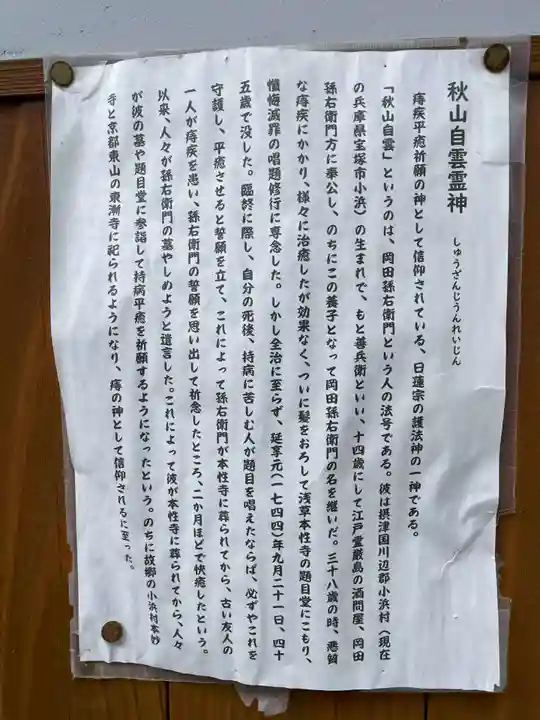 秋山自雲霊神
しゅうざんじうんれいじん
痔疾平癒祈願の神として信仰されている、日蓮宗の護法神の一神である。
「秋山自雲」というのは、岡田孫右衛門という人の法号である。彼は摂津国川辺郡小浜村（現在
の兵庫県宝塚市小浜）の生まれで、もと善兵衛といい、十四歳にして江戸霊厳島の酒問屋、岡田
孫右衛門方に奉公し、のちにこの養子となって岡田孫右衛門の名を継いだ。三十八歳の時、悪質
な痔疾にかかり、様々に治癒したが効果なく、ついに髪をおろして浅草本性寺の題目堂にこもり、
懺悔滅罪の唱題修行に専念した。しかし全治に至らず、延享元（一七四四）年九月二十一日、四十
五歳で没した。臨終に際し、自分の死後、持病に苦しむ人が題目を唱えたならば、必ずやこれを
守護し、平癒させると誓願を立て、これによって孫右衛門が本性寺に葬られてから、古い友人の
一人が痔疾を患い、孫右衛門の誓願を思い出して祈念したところ、二か月ほどで快癒したという。
以来、人々が孫右衛門の墓やしめようと遺言した。これによって彼が本性寺に葬られてから、人々
が彼の墓や題目堂に参詣して持病平癒を祈願するようになったという。のちに故郷の小浜村本妙
寺と京都東山の東漸寺に祀られるようになり、痔の神として信仰されるに至った。